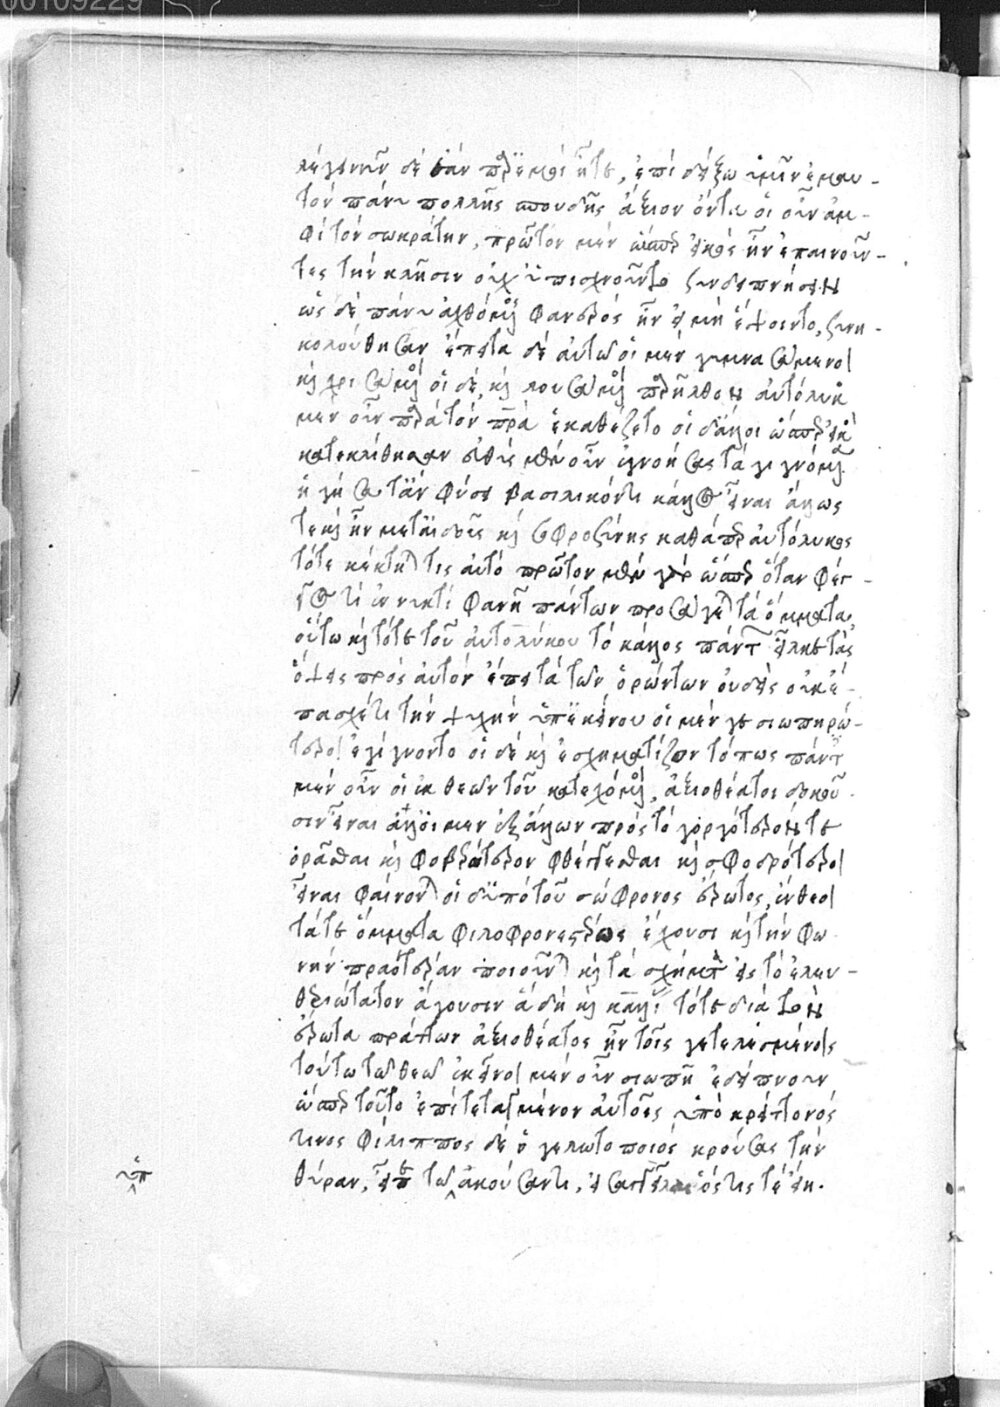 00109229
λέγειν νῦν δὲ ἐὰν παρ' ἐμοὶ ἦτε, ἐπιδείξω ὑμῖν ἐμαυ-
τὸν πάνυ πολλῆς σπουδῆς ἄξιον ὄντα οἱ οὖν ἀμ-
φὶ τὸν σωκράτην, πρῶτον μὲν ὥσπερ εἰκὸς ἦν ἐπαινοῦν-
τες τὴν κλῆσιν οὐχ ὑπισχνοῦντο συνδειπνήσειν
ὡς δὲ πάνυ ἀχθόμενος φανερὸς ἦν εἰ μὴ ἕψοιντο, συνη-
κολούθησαν ἔπειτα δὲ αὐτῶ οἱ μὲν γυμνασάμενοι
καὶ χρισάμενοι οἱ δὲ, καὶ λουσάμενοι παρῆλθον αὐτόλυκος
μὲν οὖν παρὰ τὸν πρα ἐκαθέζετο οἱ δ' ἄλλοι ὥσπερ εἰκὸς
κατεκλίθησαν εὐθὺς μὲν οὖν ἐννοήσας τὰ γιγνόμενα
ἡγήσατ' ἂν φύσει βασιλικόν τι κάλλος εἶναι ἄλλως
τε καὶ ἢν μετ' αἰδοῦς καὶ σωφροσύνης καθάπερ αὐτόλυκος
τότε κέκτηται τις αὐτό πρῶτον μὲν γὰρ ὥσπερ ὅταν φέγ-
γος τι ἐν νυκτὶ φανῆ πάντων προσάγεται τὰ ὄμματα,
οὕτω καὶ τότε τοῦ αὐτολύκου τὸ κάλλος πάντων εἷλκε τὰς
ὄψεις πρὸς αὐτόν ἔπειτα τῶν ὁρώντων οὐδεὶς οὐκ ἔ-
πασχέ τι τὴν ψυχὴν ὑπ' ἐκείνου οἱ μέν γε σιωπηρό-
τεροι ἐγίγνοντο οἱ δὲ καὶ ἐσχηματίζοντό πως πάντες
μὲν οὖν οἱ ἐκ θεῶν του κατεχόμενοι, ἀξιοθέατοι δοκοῦ-
σιν εἶναι ἀλλ' οἱ μὲν ἐξ ἄλλων πρὸς τὸ γοργότεροί τε
ὁρᾶσθαι καὶ φοβερώτερον φθέγγεσθαι καὶ σφοδρότεροι
εἶναι φαίνονται οἱ δ' ὑπὸ τοῦ σώφρονος ἔρωτος, ἔνθεοι
τά τε ὄμματα φιλοφρονεστέρως ἔχουσι καὶ τὴν φω-
νὴν πραοτέραν ποιοῦνται καὶ τὰ σχήματα εἰς τὸ ἐλευ-
θεριώτατον ἄγουσιν ἃ δὴ καὶ καλλίας τότε διὰ τὸν
ἔρωτα πράττων ἀξιοθέατος ἦν τοῖς τετελεσμένοις
τούτω τῶ θεῶ ἐκεῖνοι μὲν οὖν σιωπῆ ἐδείπνουν
ὥσπερ τοῦτο ἐπιτεταγμένον αὐτοῖς ὑπὸ κρείττονός
τινος φίλιππος δὲ ὁ γελωτοποιός κρούσας τὴν
θύραν, εἶπε τῶ ἀκούσαντι, εἰσαγγεῖλαι ὅστις τε εἴη.
ὑπ